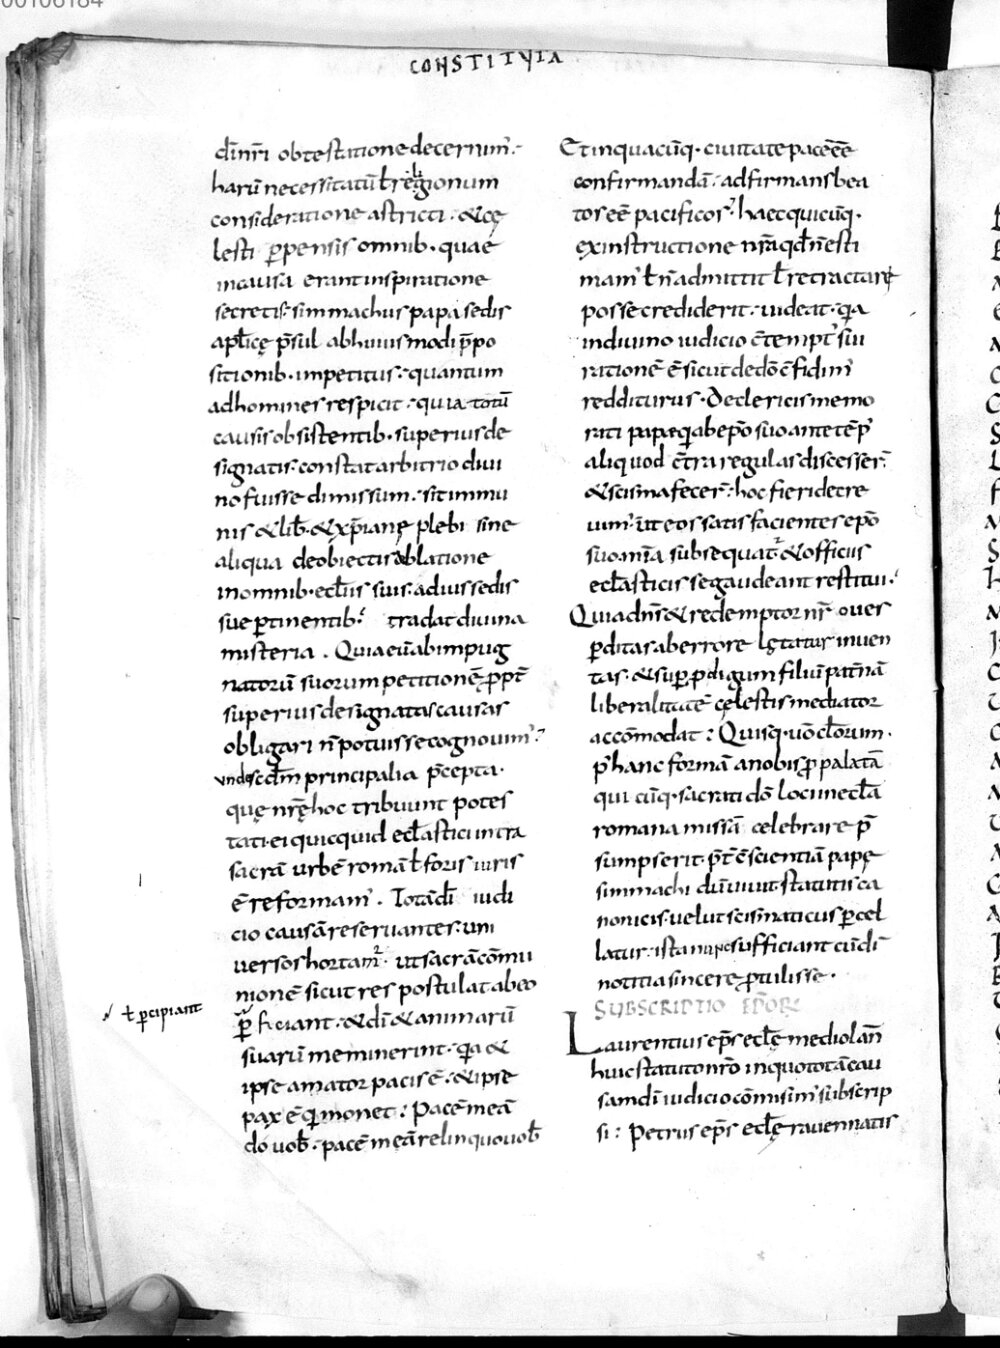 00106184
CONSTITUTA
d̄i nr̄i obtestatione decernim᷒:
harū necessitatū ł religionum
consideratione astricti · & cę
lesti p̱pensis omnib· quae
in causa erant inspiratione
secretis: simmachus papa sedis
apl̄icę p̄sul ab huiusmodi p̄po
sitionib· impetitus: quantum
ad homines respicit: quia totū
causis obsistentib· superius de
signatis: constat arbitrio diui
no fuisse dimissum: sit immu
nis & lib̄· & xp̄ianę plebi sine
aliqua de obiectis oblatione
in omnib· ecl̄iis suis: ad ius sedis
sue p̱tinentib: tradat diuina
misteria. Quia eū ab impug
natorū suorum petitionē p̱pt̄
superius designatas causas
obligari n̄ potuisse cognouim᷒:
unde scd̄m principalia p̄cepta·
quę nr̄ę hoc tribuunt potes
tati· ei quicquid ecl̄astici intra
sacrā urbē romā ł foris iuris
ē reformam᷒. Totā d̄i iudi
cio causā reseruantes: uni
uersos hortam᷒· ut sacrā cōmu
nionē sicut res postulat ab eo
ł p̱cipiant
p̱ficiant: & d̄i & animarū
suarū meminerint· q̄a &
ipse amator pacis ē: & ipse
pax ē qi monet: Pacē meā
do uob̄· pacē meā relinquo uob̄
Et in quacūq· ciuitate pacē eē
confirmandā: ad firmans bea
tos eē pacificos: haec quicūq·
ex instructione nr̄a qd̄ n̄ esti
mam᷒ ł n̄ admittit ł retractare
posse crediderit: uideat· q̄a
in diuino iudicio c̄tempt᷒ sui
rationē ē sicut de dō c̄fidim᷒
redditurus· De clericis memo
rati papę qi ab ep̄o suo ante tēp᷒
aliquod c̄tra regulas discesser̄:
& scisma fecer̄: hoc fieri decre
uim᷒: ut eos satisfacientes ep̄o
suo mīa subsequat᷒: & officiis
ecl̄asticis se gaudeant restitui:
Quia dn̄s & redemptor nr̄ oues
p̱ditas ab errore lętatur inuen
tas· & sup̱ p̱digum filiū patn̄ā
liberalitatē cęlestis mediator
accōmodat: Quisq· uō cl̄orum·
p᷒ hanc formā a nobis p̱palatā
qui cūq· sacrati dō loci in ecl̄a
romana missā celebrare p̄
sumpserit· p̄t c̄scientiā papę
simmachi dū uiuit: statutis ca
nonicis: uelut scismaticus p̱cel
latur: ista nunc sufficiant cūdi
notitia sincere p̱tulisse·
SUBSCRIPTIO EP̄OR̄
Laurentius ep̄s ecl̄ę mediolan̄
huic statuto nr̄o in quo totā cau
sam d̄i iudicio cōmisim᷒ subscrip
si: Petrus ep̄s ecl̄ę rauennatis